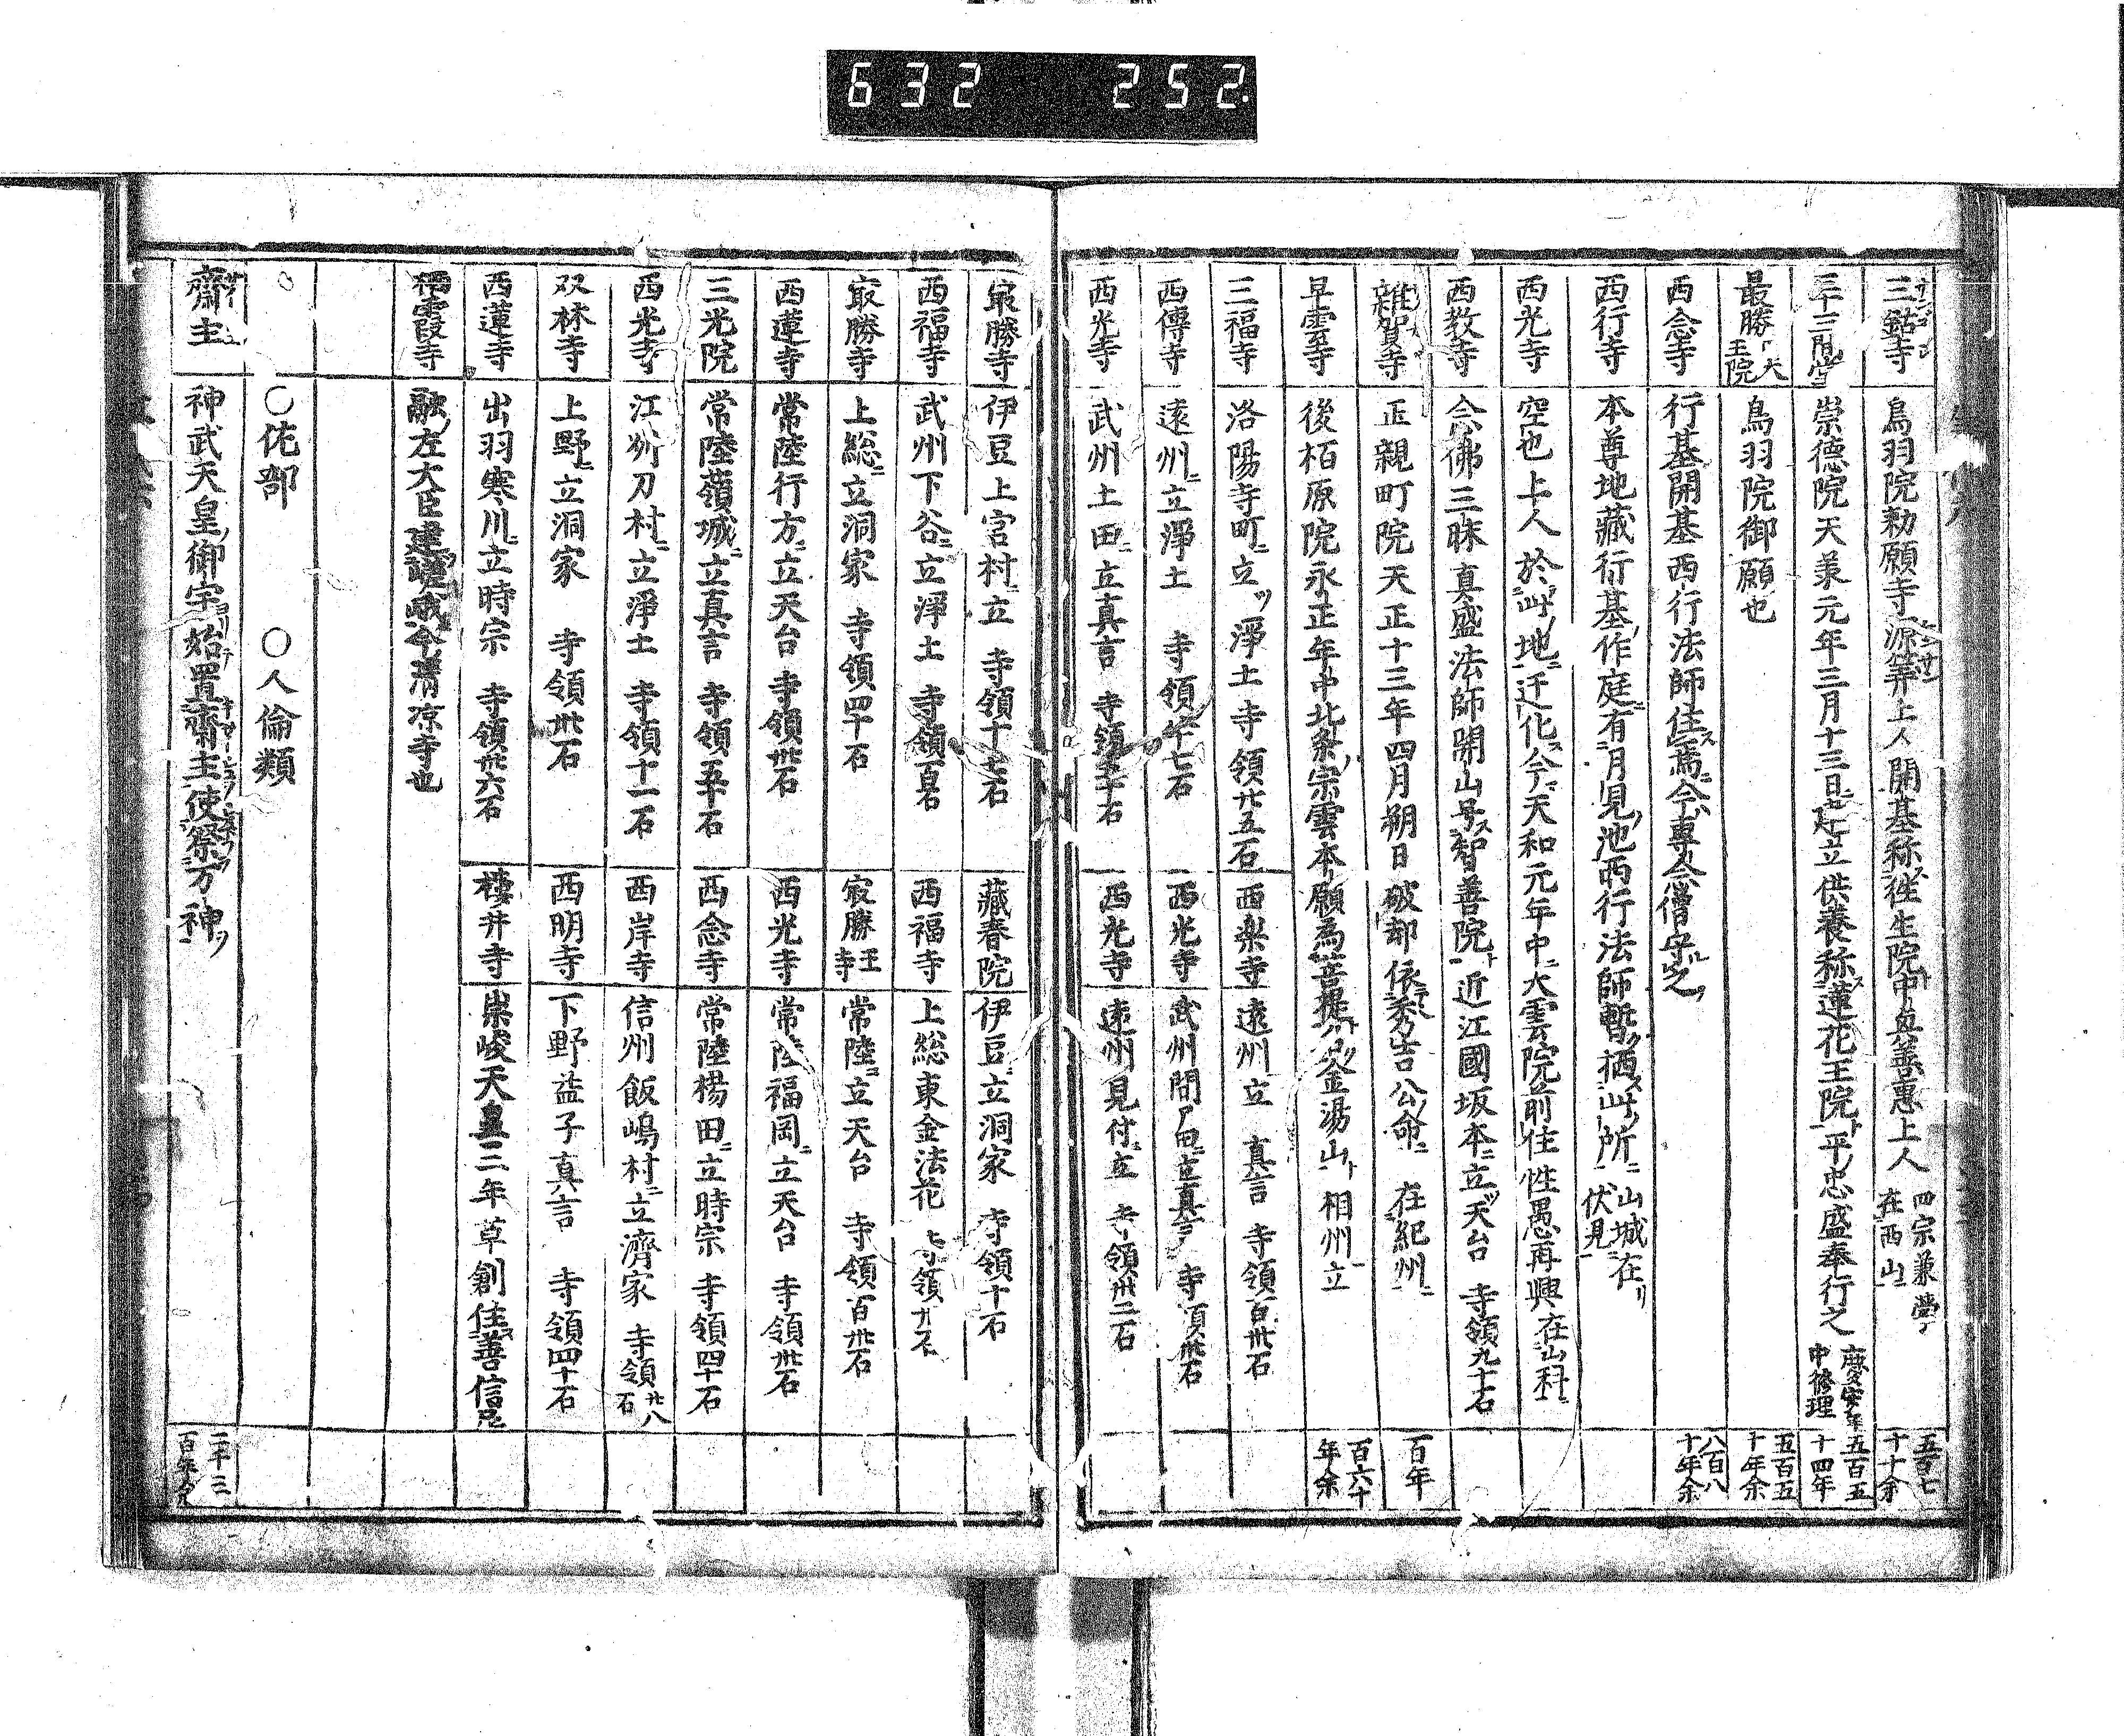 632 252.
三鈷寺 鳥羽院勅願寺源筭上人開基称往生院中興善惠上人 四宗兼學 在西山 五百七十年余
三十三間堂 崇徳院天承元年三月十三日建立供養称蓮花王院平忠盛奉行之 慶安年中修理 五百五十四年
最勝 王院 鳥羽院御願也 五百五十年余
西念寺 行基開基西行法師住焉今專念僧守之 八百八十年余
西行寺 本尊地藏行基作庭有月見池西行法師暫栖此所 山城在伏見
西光寺 空也上人於此地迁化今天和元年中大雲院前住性愚再興在山科
西教寺 念佛三昧真盛法師開山号智善院近江國坂本立天台 寺領九十石
雜賀寺 正親町院天正十三年四月朔日破却依秀吉公命 在紀州 百年
早雲寺 後栢原院永正年中北条宗雲本願為菩提号金湯山 相州立 百六十年余
三福寺 洛陽寺町立淨土寺領廿五石 西楽寺 遠州立 真言 寺領百卅石
西傳寺 遠州立淨土 寺領 七石 西光寺 武州間 田立真言 寺領卅石
西光寺 武州土田立真言 寺領 十石 西光寺 遠州見付立 寺領卅二石
最勝寺 伊豆上宮村立 寺領十 石 藏春院 伊豆立洞家 寺領十石
西福寺 武州下谷立淨土 寺領百石 西福寺 上総東金法花 寺領廿石
最勝寺 上総立洞家 寺領四十石 最勝王寺 常陸立天台 寺領百卅石
西蓮寺 常陸行方立天台 寺領卅石 西光寺 常陸福岡立天台 寺領卅石
三光院 常陸 城立真言 寺領五十石 西念寺 常陸楊田立時宗 寺領四十石
西光寺 江州刀村立淨土 寺領十一石 西岸寺 信州飯嶋村立濟家 寺領廿八石
双林寺 上野立洞家 寺領卅石 西明寺 下野益子真言 寺領四十石
西蓮寺 出羽寒川立時宗 寺領卅六石 櫻井寺 崇峻天皇三年草創住善信尼
栖霞寺 融左大臣建嵯峨今清凉寺也
○佐部 ○人倫類
齋主 神武天皇御宇始置齋主使祭万神 二千三百年余